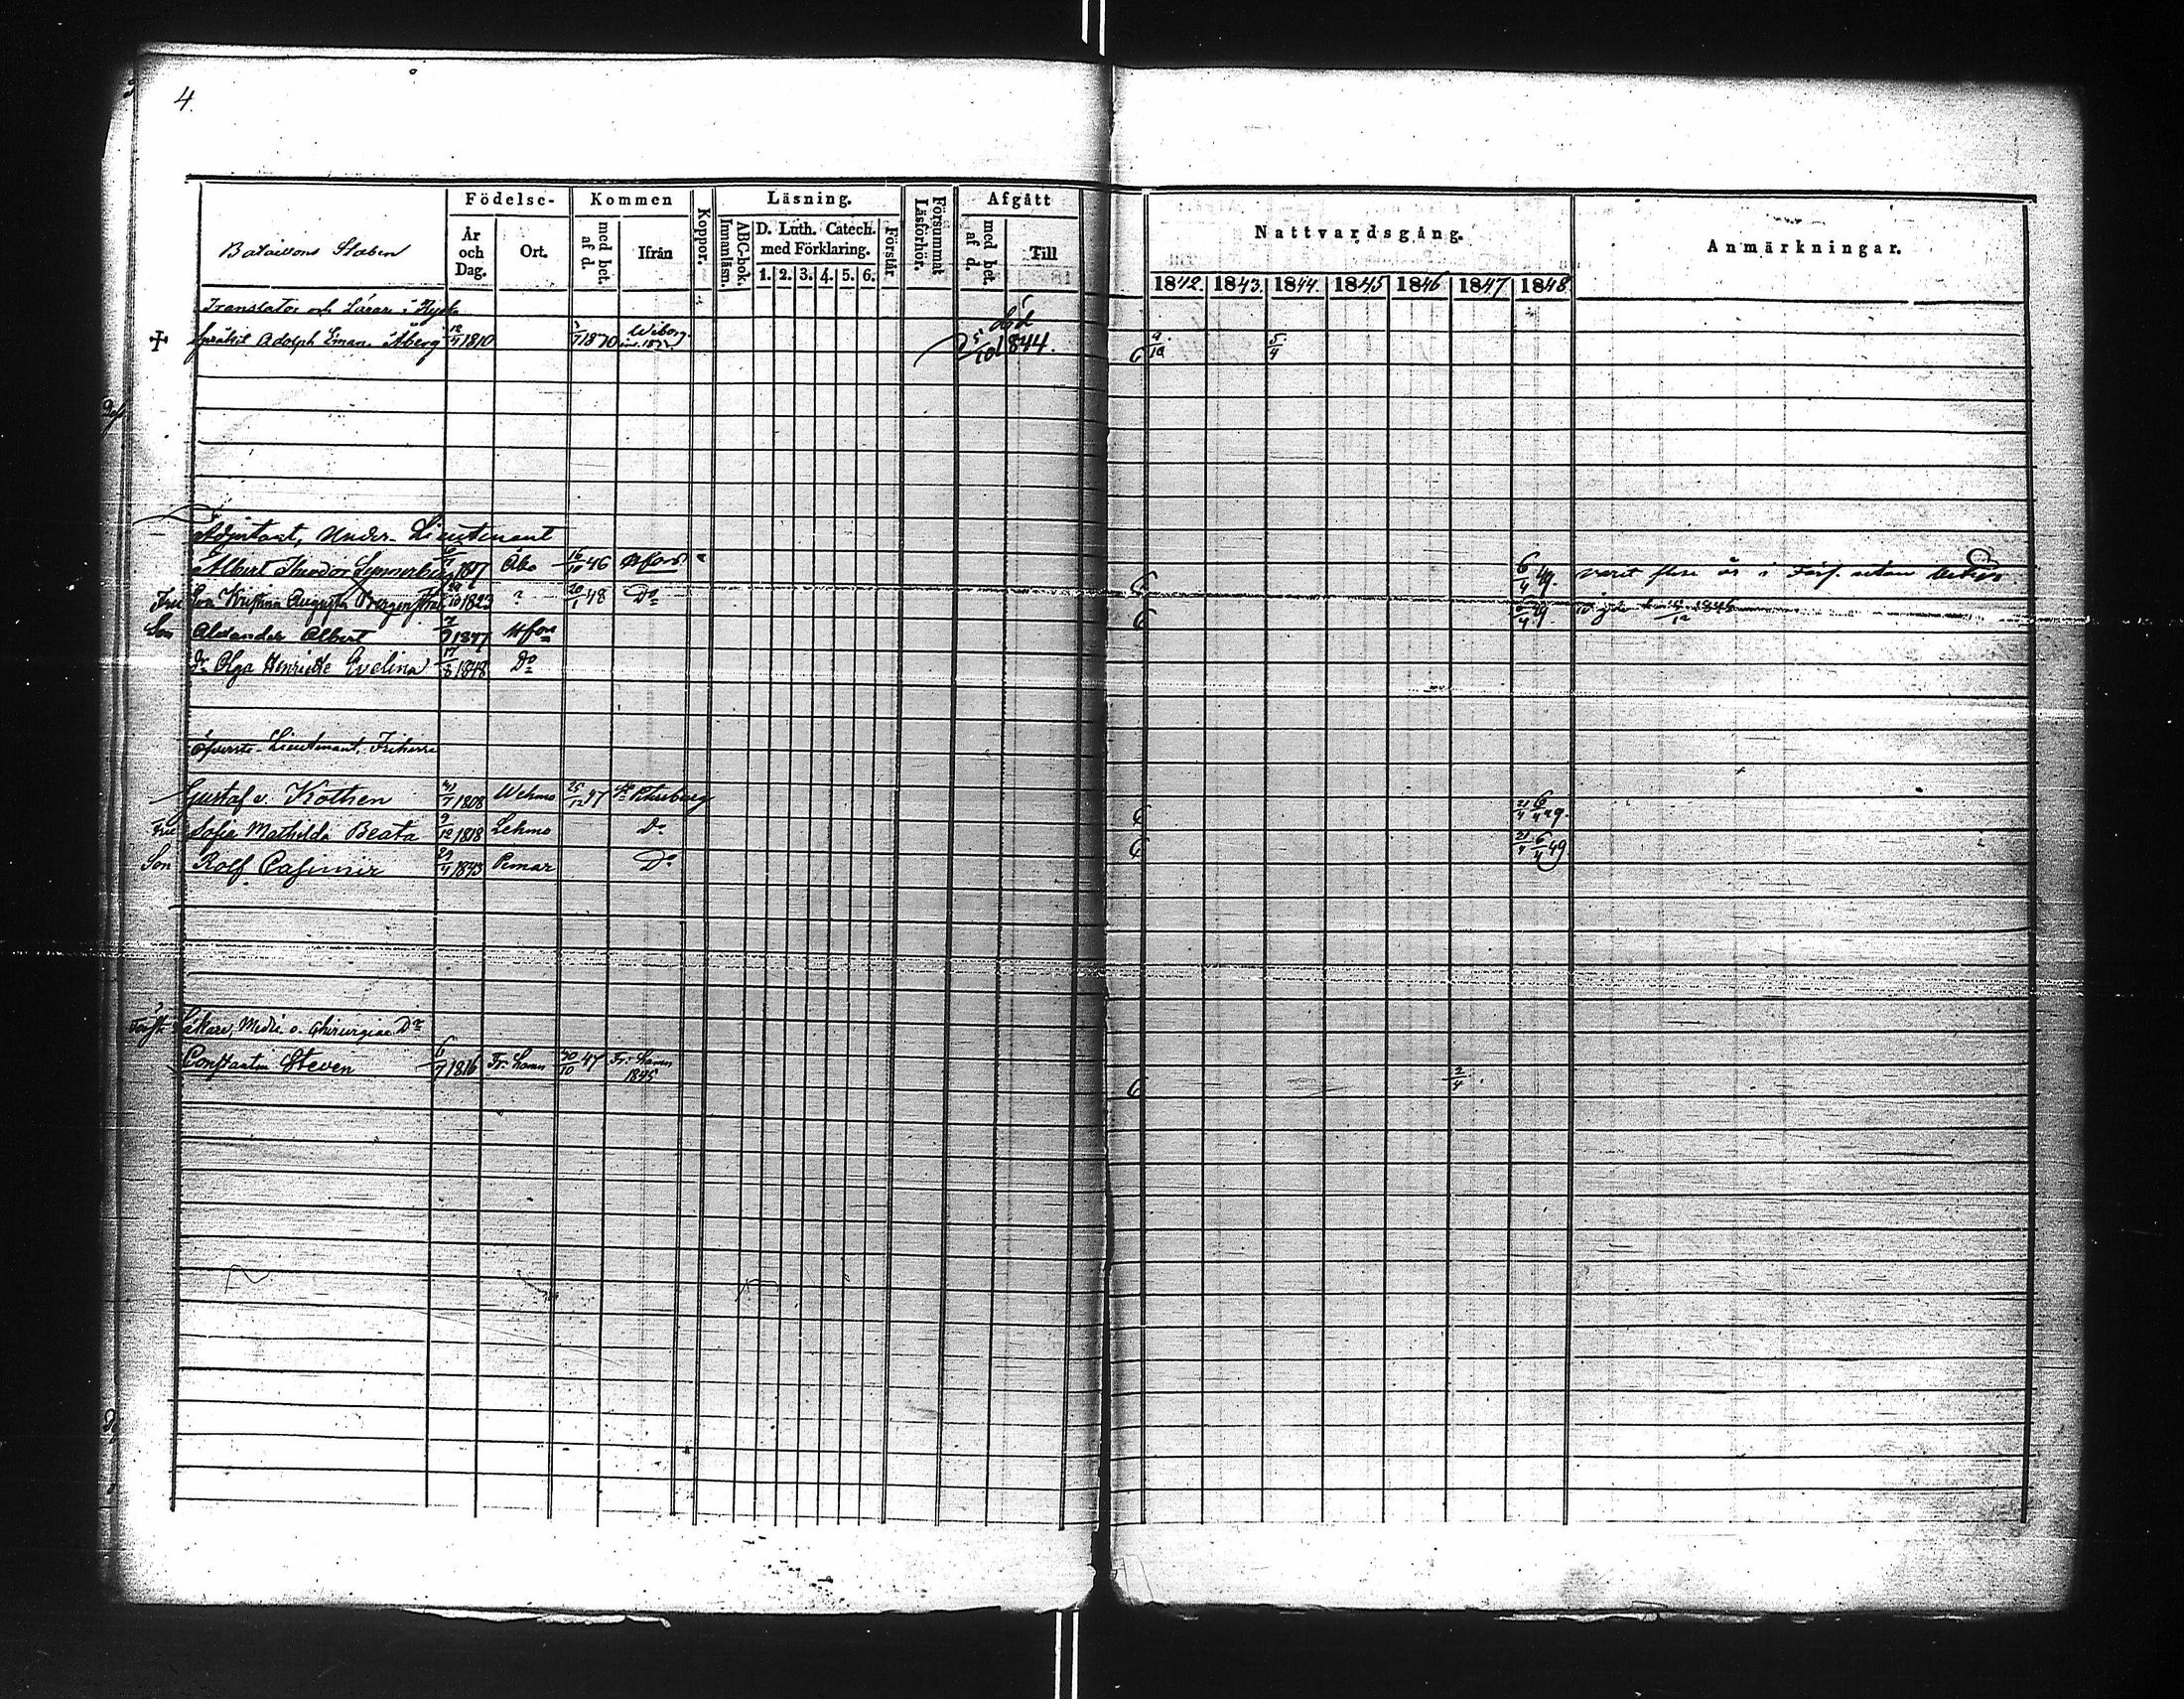 4.
Födelse- Kommen Koppor. Läsning. Försummat Läsförhör. Afgått Nattvardsgång. Anmärkningar.
Bataillons Staben År och Dag. Ort. med bet. af d. Ifrån ABC-bok. Innanläsn. D. Luth. Catech. med Förklaring. Förstår med bet. af d. Till
1. 2. 3. 4. 5. 6. 1842. 1843. 1844. 1845 1846 1847 1848.
Translator och Lärare i Ryska
Språket Adolph Eman. Åberg 12/4 1810 Wiborg död 5/10 1844. 9/10 5/4
Adjutant, Under-Lieutenant
Albert Theodor Åbo 16/10 46 Hfors 6/4 49. varit flere år i Förs. utan
Fru Eva Kristina Augusta 1823 ? 20/1 48 Do 6/4 49
Son Alexander Albert 7/9 1847 Hfors
Dr Olga Henriette Evelina 17/8 1848 Do
Öfverste-Lieutenant, Friherre
Gustaf v. Kothen 31/7 1808 Wehmo 25/12 47 St Petersburg 21/4 6/4 49.
Fru Sofia Mathilda Beata 9/12 1818 Lehmo Do 21/4 6/4 49
Son Rolf Casimir 1843 Pemar Do
Läkare, Medic. o. Chirurgiae Dr
Constantin Steven 6/7 1816 Fr. hamn 30/10 47 Fr. hamn 1845 2/4